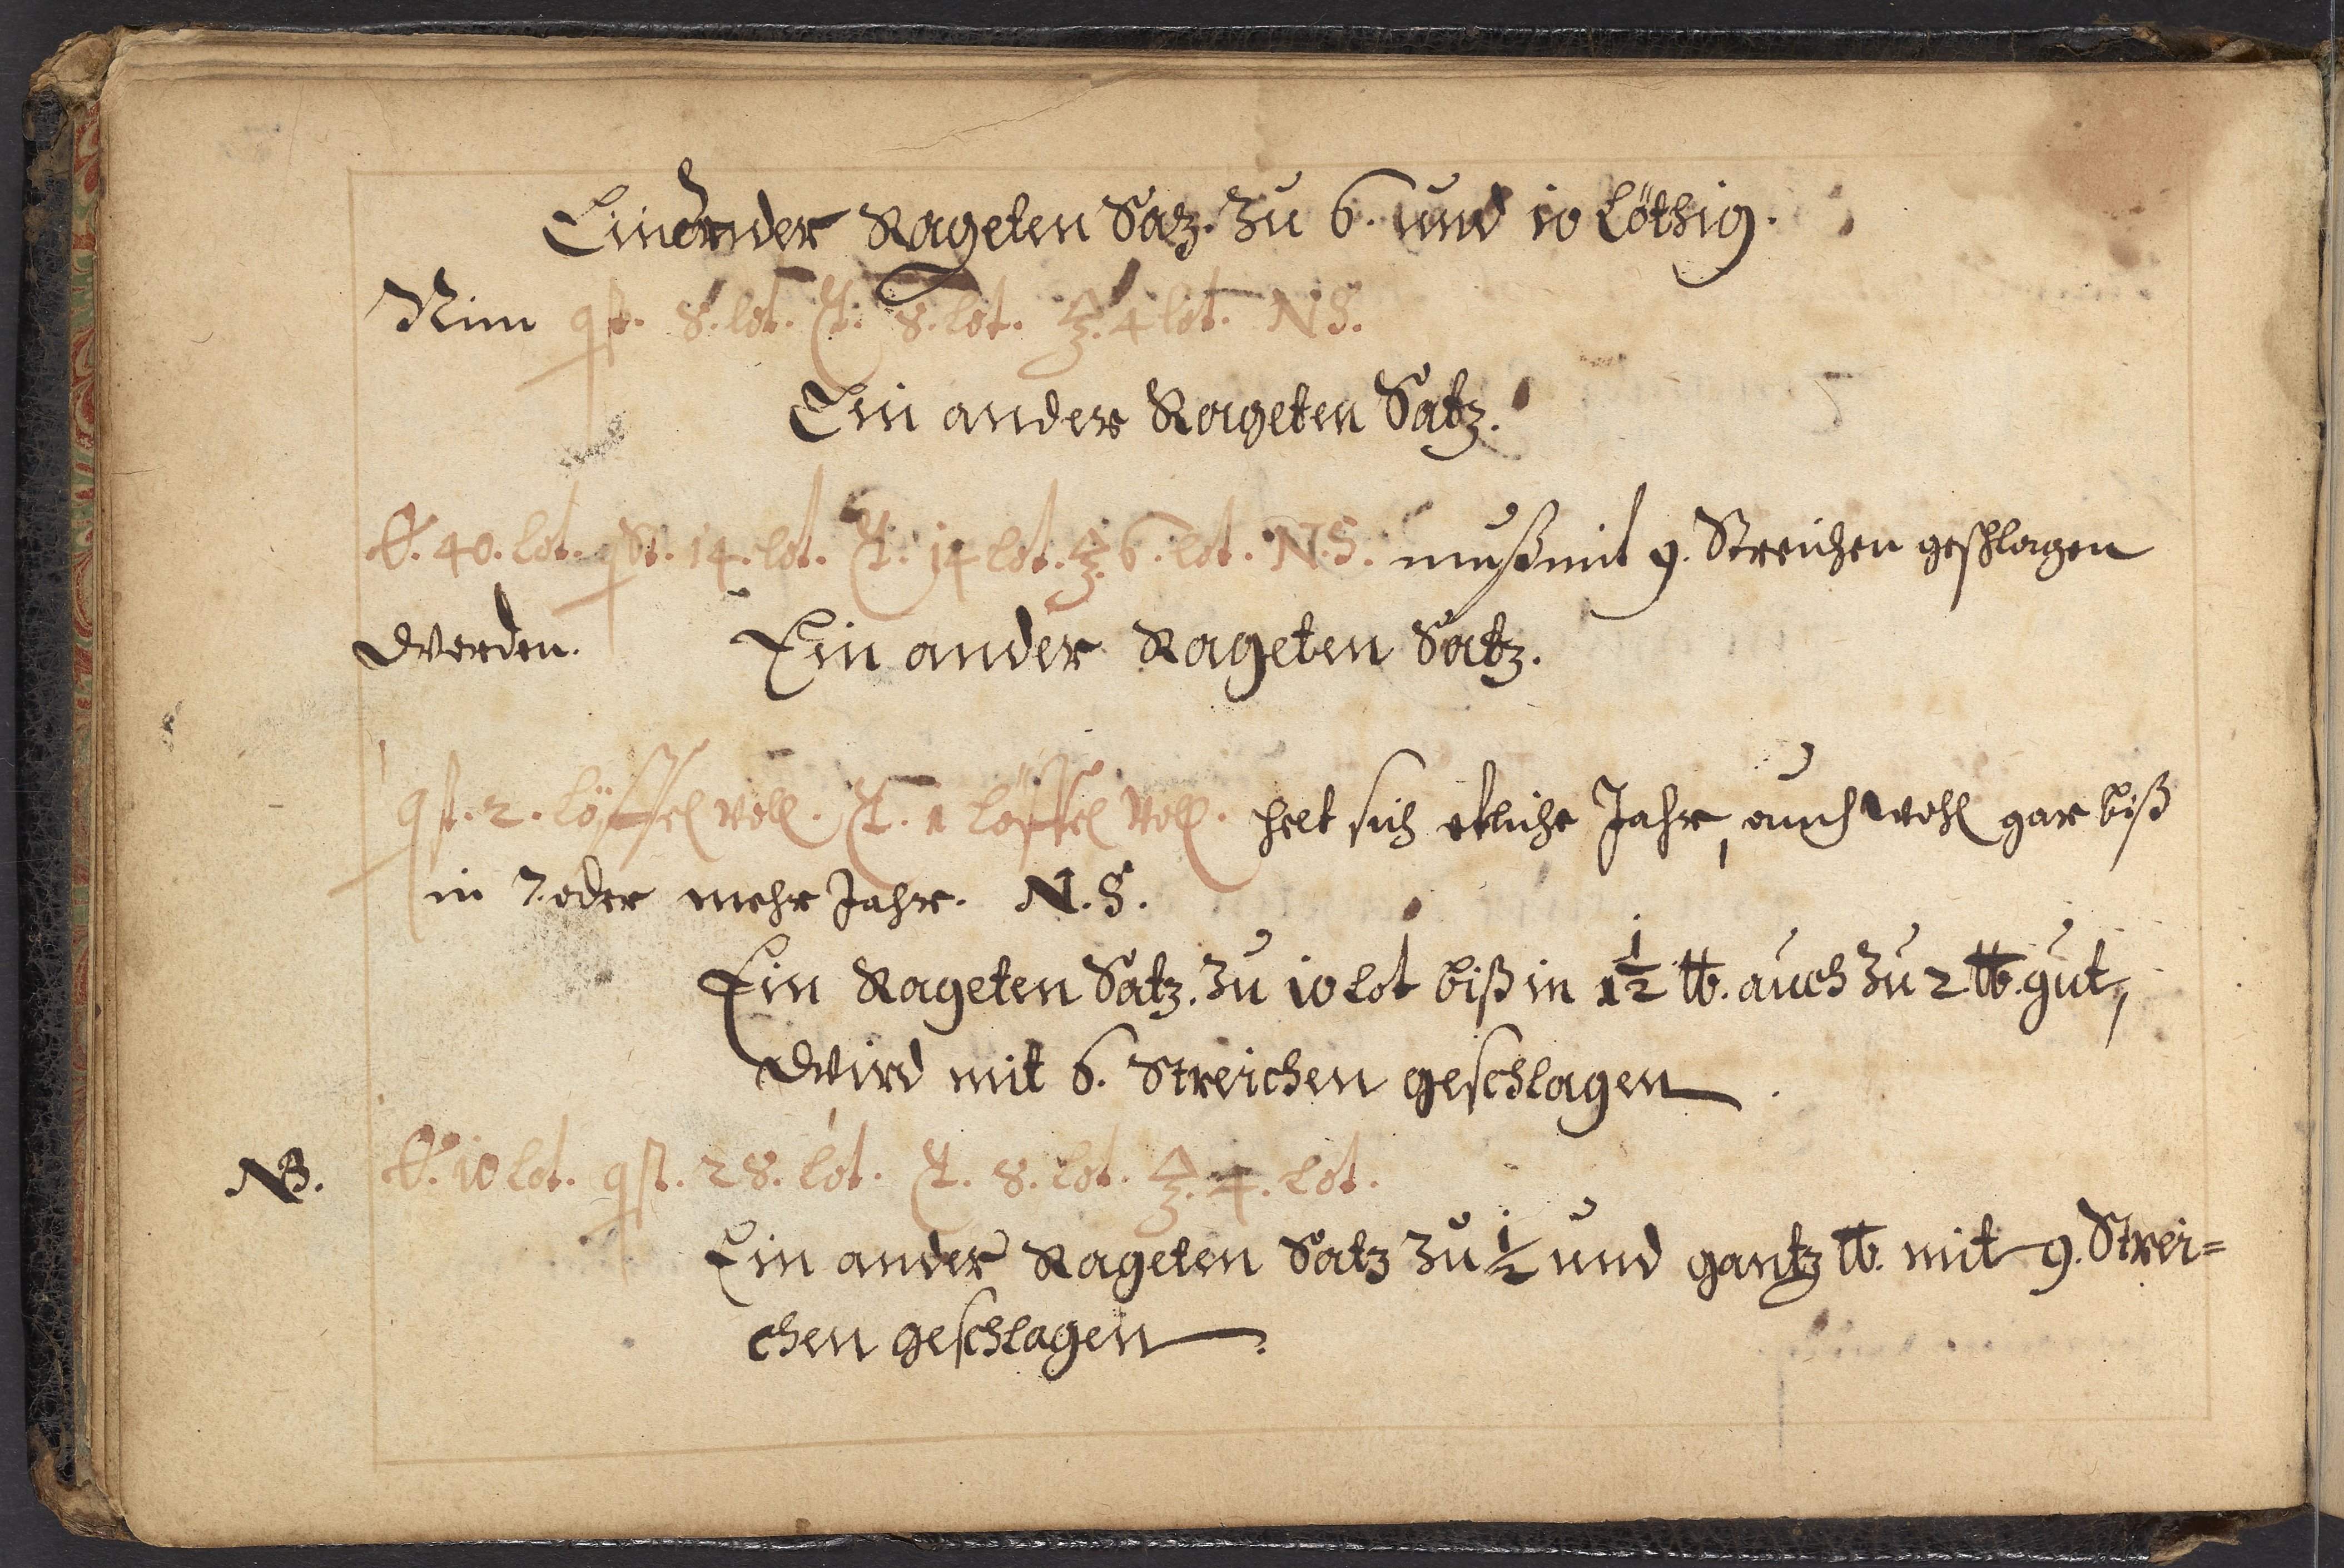 Ein ander Rageten Satz. zu 6. und 10 löthig.
Nim qst. 8. lot. 8. lot. 4 lot. N S.
Ein ander Rageten Satz.
40. lot. qst. 14. lot. 14 lot. 6. lot. N. S. muß mit 9. Streichen geschlagen
werden. Ein ander Rageten Satz.
qst. 2. löffel voll. 1 löffel voll. helt sich etliche Jahr, auch wohl gar biß
in 7. oder mehr Jahr. N. S.
Ein Rageten Satz. zu 10 lot biß in 1½ ℔. auch zu 2 ℔. gut,
wird mit 6. Streichen geschlagen.
NB. 10 lot. qst. 28. lot. 8. lot. 4. lot.
Ein ander Rageten Satz zu ½ und gantz ℔. mit 9. Strei=
chen geschlagen.